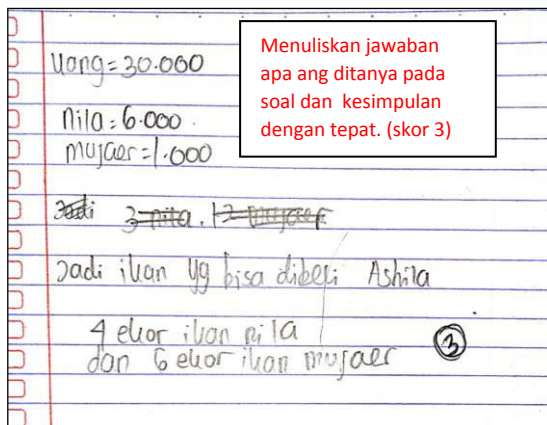 Uang = 30.000
Menuliskan jawaban
apa ang ditanya pada
soal dan kesimpulan
dengan tepat. (skor 3)
nila = 6.000
mujaer = 1.000
Jadi 3 nila. 12 mujaer
Jadi ikan yg bisa dibeli Ashila
4 ekor ikan nila
dan 6 ekor ikan mujaer
3